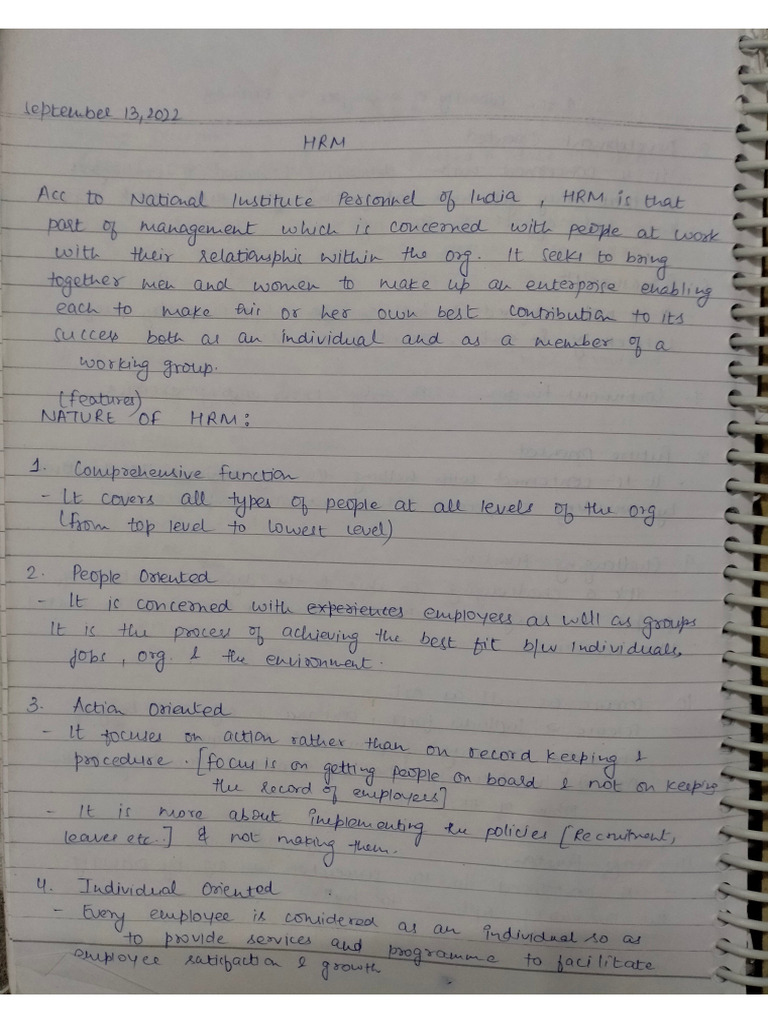 September 13, 2022
HRM
Acc to National Institute Personnel of India , HRM is that
part of management which is concerned with people at work
with their relationphis within the org. It seeks to bring
together men and women to make up an enterprise enabling
each to make his or her own best contribution to its
success both as an individual and as a member of a
working group.
(features)
NATURE OF HRM :
1. Comprehensive function
- It covers all types of people at all levels of the org
(from top level to lowest level)
2. People Oriented
- It is concerned with experiences employees as well as groups
It is the process of achieving the best fit b/w individuals,
jobs , org. & the environment.
3. Action Oriented
- It focuses on action rather than on record keeping &
procedure . [focus is on getting people on board & not on keeping
the record of employees]
- It is more about implementing the policies [Recruitment,
leaves etc..] & not making them.
4. Individual Oriented
- Every employee is considered as an individual so as
to provide services and programme to facilitate
employee satisfaction & growth